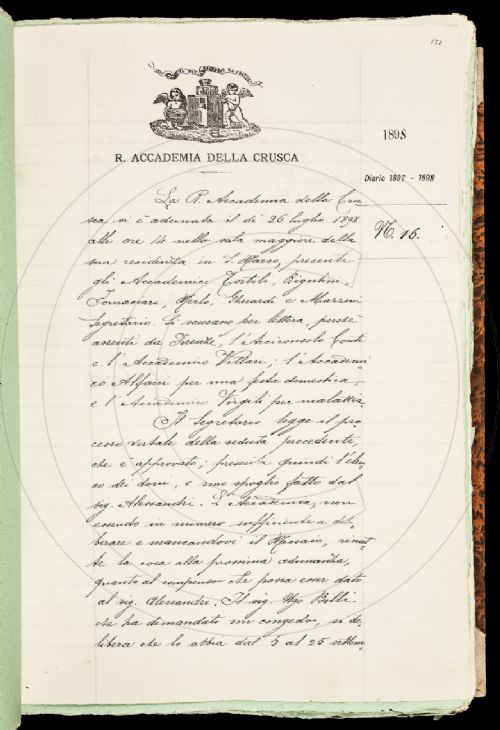 151
R. ACCADEMIA DELLA CRUSCA
1898
Diario 1897 - 1898
N. 16.
La R. Accademia della Cru-
sca, si è adunata il dì 26 luglio 1898
alle ore 14 nella sala maggiore della
sua residenza in S. Marco, presenti
gli Accademici Tortoli, Rigutini,
Tornaciari, Merlo, Gherardi e Mazzoni
Segretario. Si scusano per lettera, perché
assenti da Firenze, l'Arciconsolo Conti
e l'Accademico Villari; l'Accademi-
co Alfani per una festa domestica,
e l'Accademico Virgili per malattia.
Il Segretario legge il pro-
cesso verbale della seduta precedente,
che è approvato; presenta quindi l'elen-
co dei doni, e uno spoglio fatto dal
sig. Alessandri. L'Accademia, non
essendo in numero sufficiente a deli-
berare e mancandovi il Massaio, rimet-
te la cosa alla prossima adunanza,
quanto al compenso che possa esser dato
al sig. Alessandri. Il sig. Ugo Belli
che ha domandato un congedo, si de-
libera che lo abbia dal 5 al 25 settem-